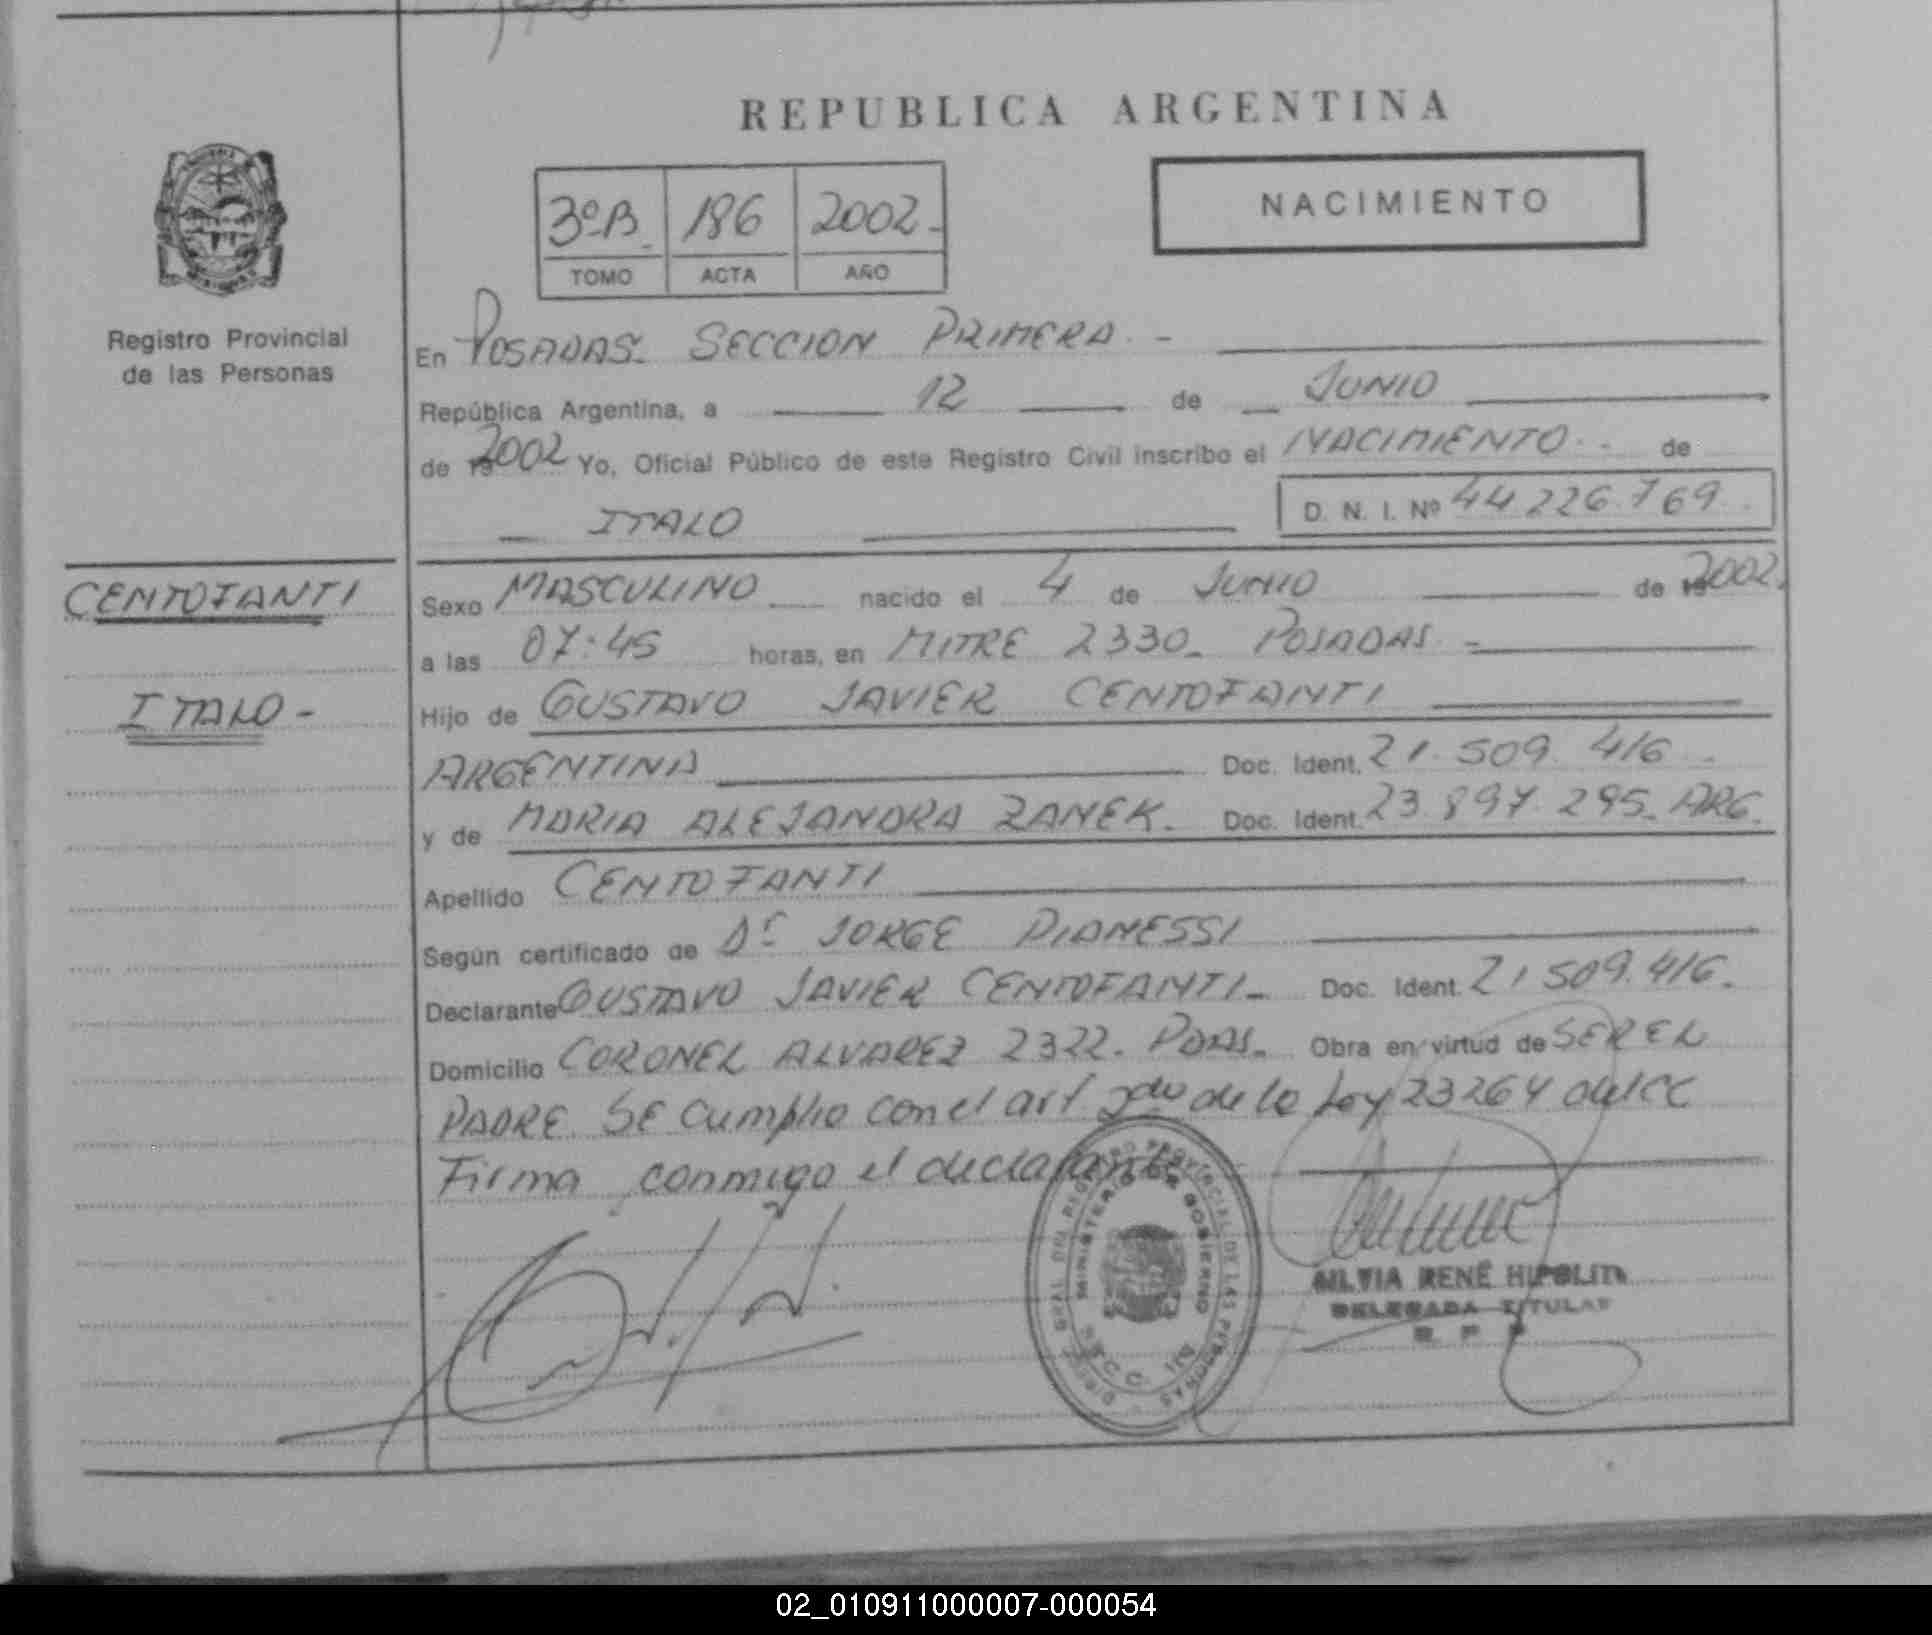 REPUBLICA ARGENTINA
NACIMIENTO
3ºB. 186 2002.-
TOMO ACTA AÑO
Registro Provincial
de las Personas
En POSADAS. SECCION PRIMERA. -
República Argentina, a 12 de JUNIO
de 2002 Yo, Oficial Público de este Registro Civil inscribo el NACIMIENTO.. de
ITALO D. N. I. Nº 44 226.769.
CENTOFANTI
ITALO -
Sexo MASCULINO nacido el 4 de JUNIO de 2002.
a las 07:45 horas, en MITRE 2330. POSADAS. -
Hijo de GUSTAVO JAVIER CENTOFANTI
ARGENTINA Doc. Ident. 21.509.416.
y de MARIA ALEJANDRA ZANEK. Doc. Ident. 23.897.295. ARG.
Apellido CENTOFANTI
Según certificado de Dr JORGE PIANESSI
Declarante GUSTAVO JAVIER CENTOFANTI. Doc. Ident. 21 509.416.
Domicilio CORONEL ALVAREZ 2322. PDAS. Obra en virtud de SER EL
PADRE. SE cumplio con el art 2do de la Ley 23264 del CC
Firma conmigo el declarante
DIREC. GRAL. DEL REGISTRO PROVINCIAL DE LAS PERSONAS
MINISTERIO DE GOBIERNO
SECC. 1ra
SILVIA RENÉ HIPOLITO
DELEGADA TITULAR
R P P
02_010911000007-000054